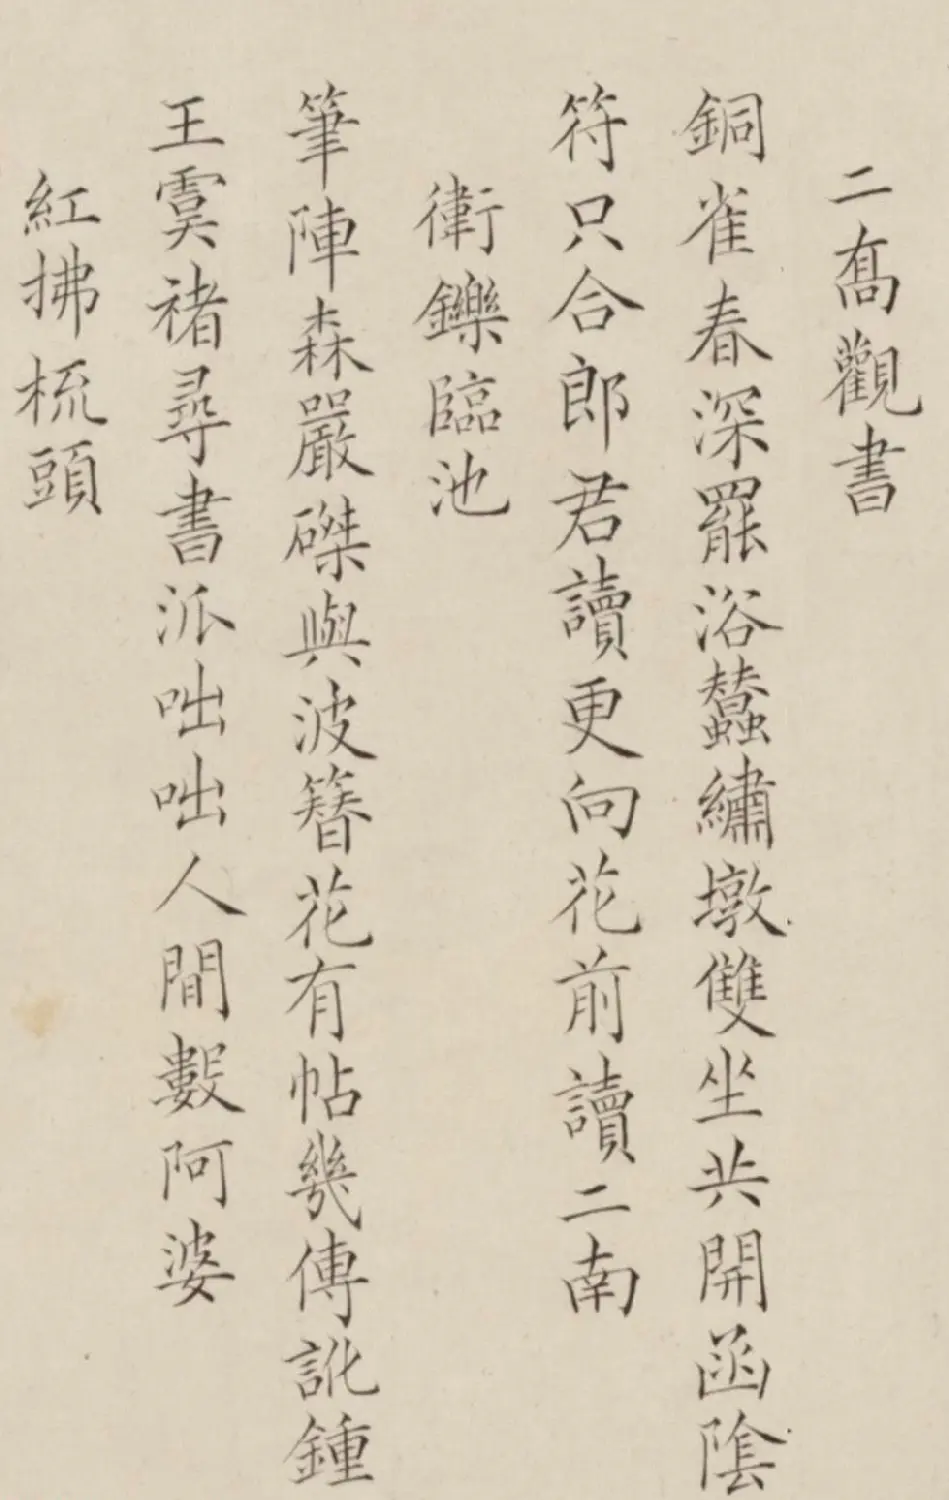 二喬觀書
銅雀春深罷浴蠶繡墩雙坐共開函陰
符只合郎君讀更向花前讀二南
衛鑠臨池
筆陣森嚴磔與波簪花有帖幾傳訛鍾
王虞褚尋書派咄咄人間數阿婆
紅拂梳頭